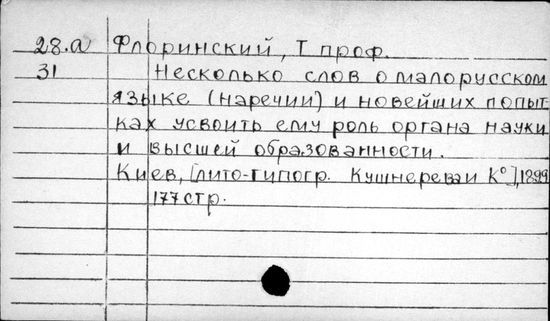 28.а Флоринский, Т проф.
31 Несколько слов о малорусском
языке (наречии) и новейших попыт
ках усвоить ему роль органа науки
и высшей образованности.
Киев, [лито-типогр. Кушнереваи К°], 1899
177 стр.